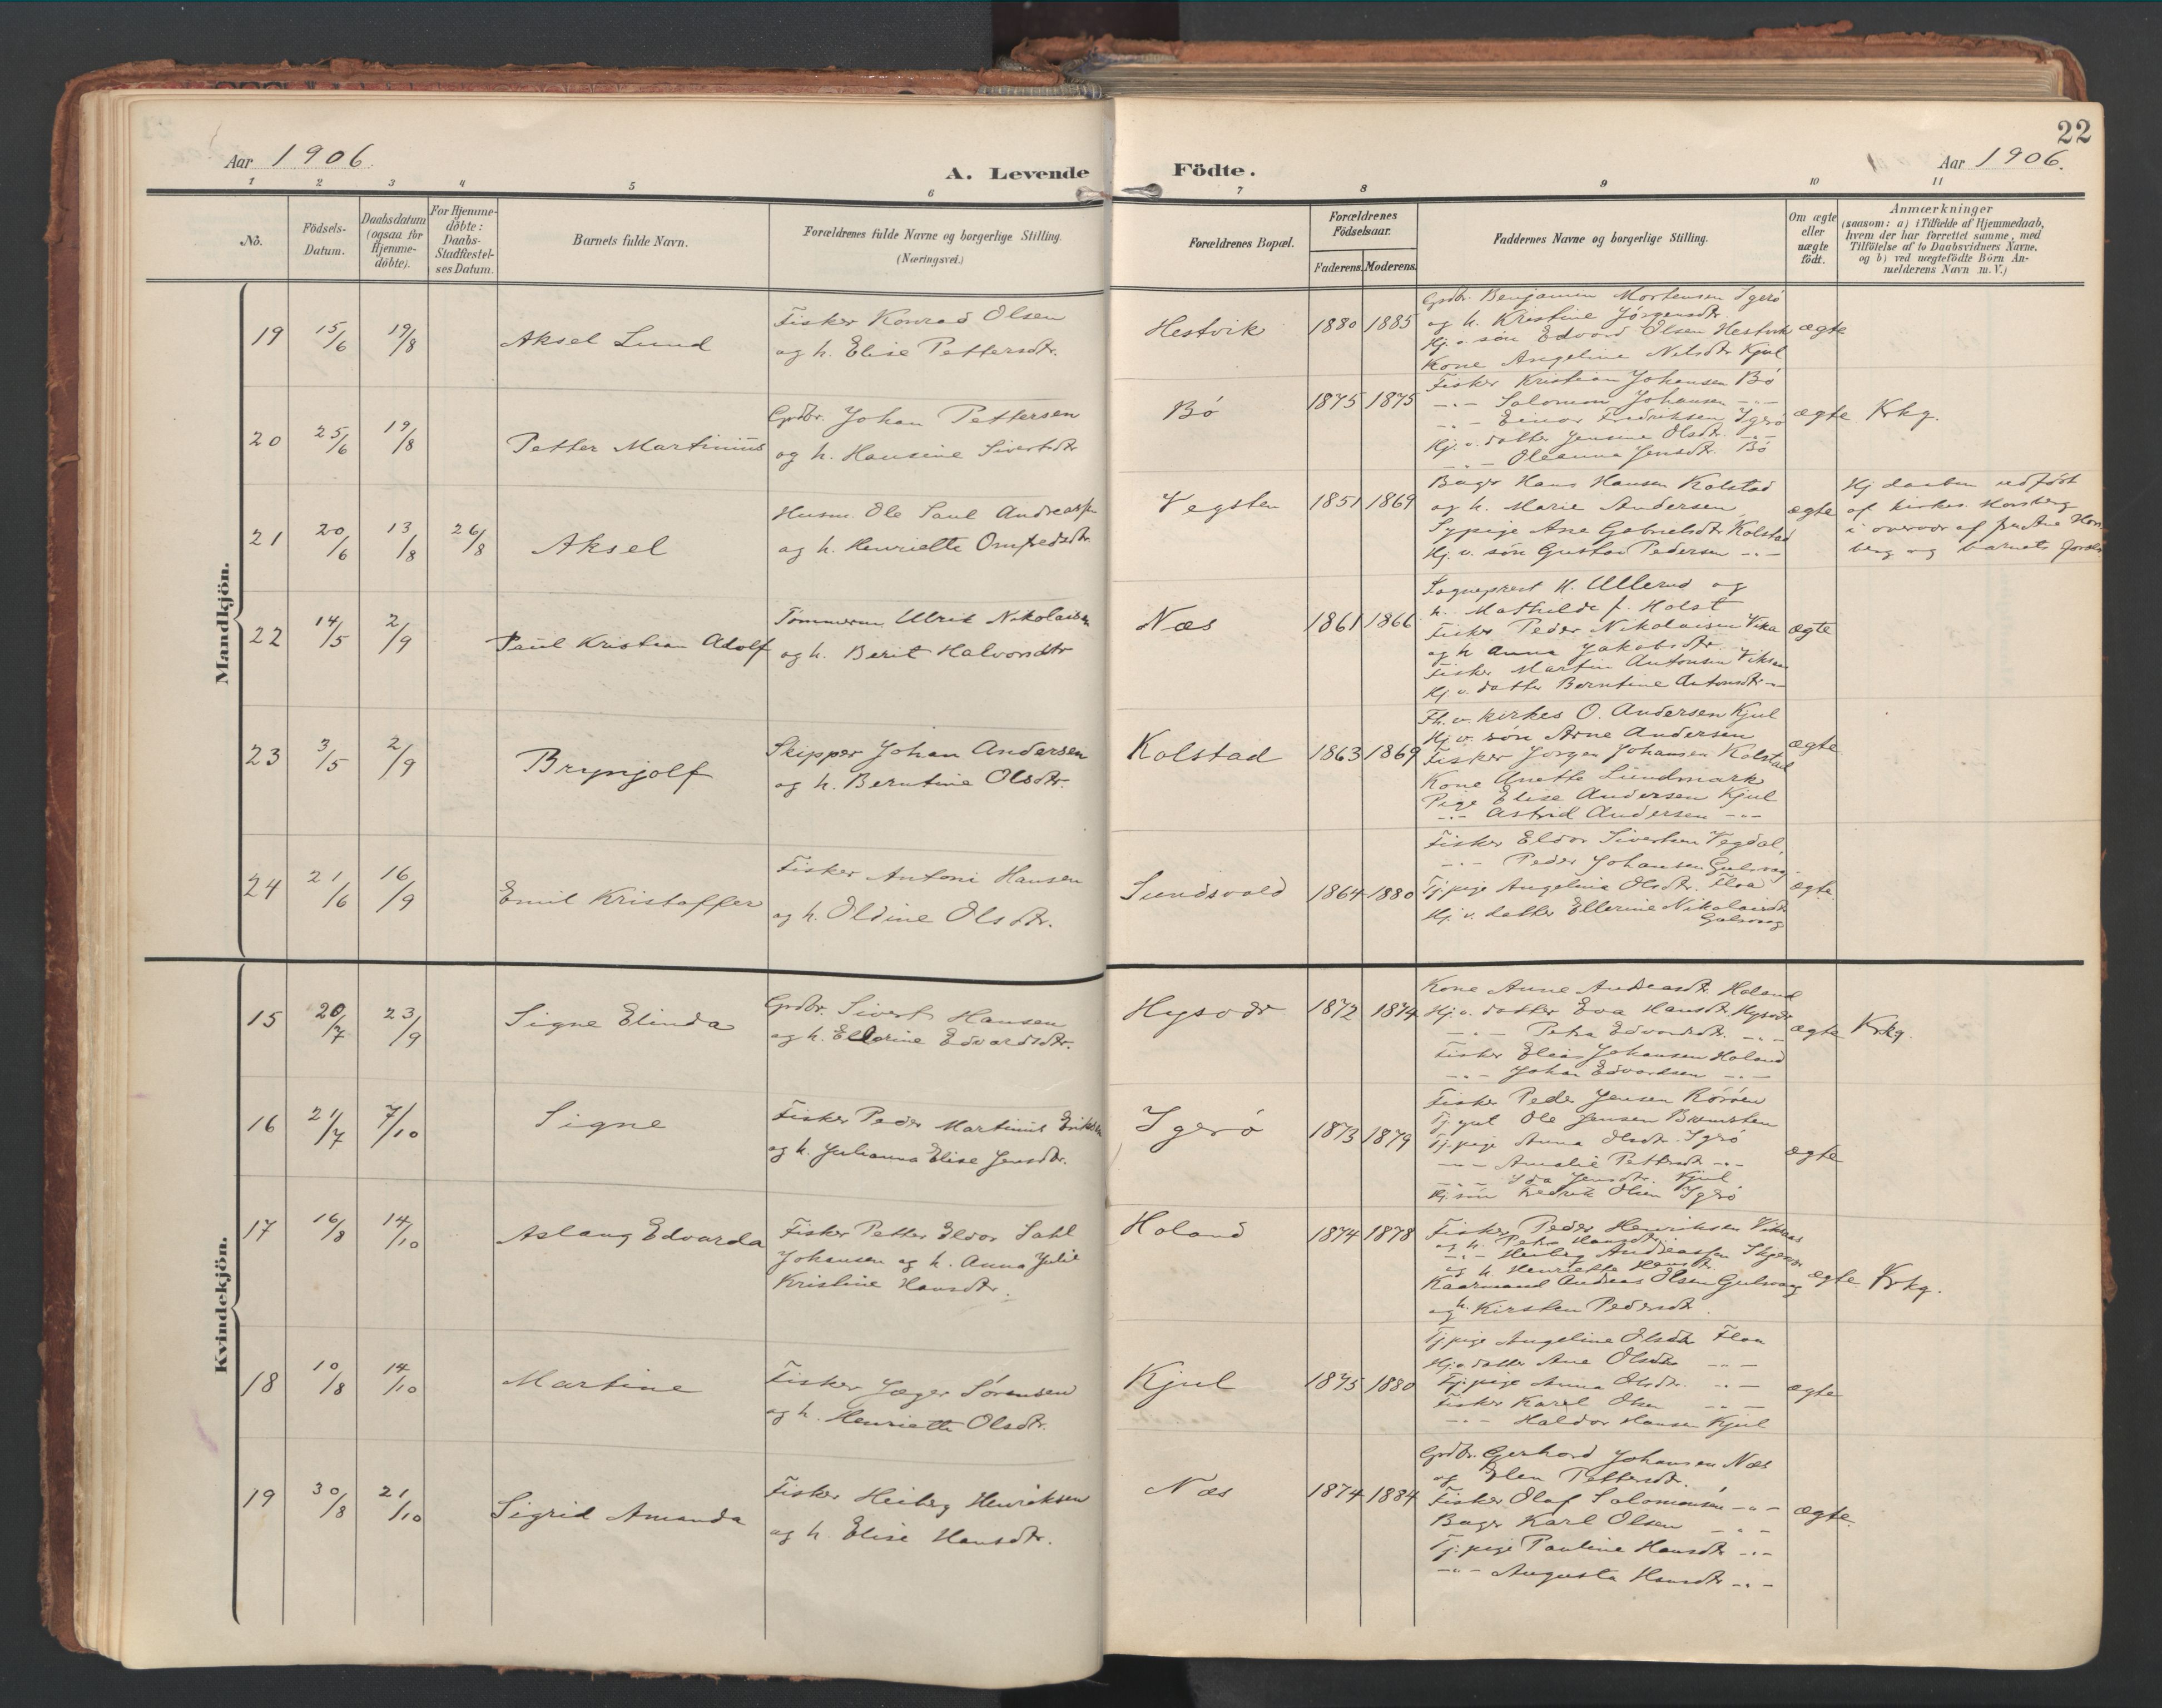 22
Aar 1906.
A. Levende Födte.
Aar 1906.
1 2 3 4 5 6 7 8 9 10 11
No.
Födsels-
Datum.
Daabsdatum
(ogsaa for
Hjemme-
döbte).
For Hjemme-
döbte:
Daabs-
Stadfæstel-
ses Datum.
Barnets fulde Navn.
Forældrenes fulde Navne og borgerlige Stilling.
(Næringsvei.)
Forældrenes Bopæl.
Forældrenes
Födselsaar.
Faderens. Moderens.
Faddernes Navne og borgerlige Stilling.
Om ægte
eller
uægte
födt.
Anmærkninger
(saasom: a) i Tilfælde af Hjemmedaab,
hvem der har forrettet samme, med
Tilföielse af to Daabsvidners Navne,
og b) ved uægtefödte Börn An-
melderens Navn m. V.)
Mandkjön.
19 15/6 19/8 Aksel Lund
Fisker Konrad Olsen
og h. Elise Pettersdtr.
Hestvik 1880 1885
Grdbr. Benjamin Mortensen Igerö
og h. Kristine Jörgensdtr.
Hj. v. sön Edvard Olsen Hestvik
Kone Angeline Nilsdtr Kjul
ægte
20 25/6 19/8 Petter Martinius
Grdbr. Johan Pettersen
og h. Hansine Sivertsdtr
Bö 1875 1875
Fisker Kristian Johansen Bö
-"- Salomon Johansen -"-
-"- Einar Fredriksen Igerö
Hj. v. datter Jensine Olsdtr. -"-
-"- Oleanna Jensdtr. Bö
ægte Krkg.
21 20/6 13/8 26/8 Aksel
Husm. Ole Paul Andreassen
og h. Henriette Omfredsdtr.
Vegsten 1851 1869
Bager Hans Hansen Kolstad
og h. Marie Andersen
Sypige Ane Gabrielsdtr. Kolstad
Hj. v. sön Gustav Pedersen -"-
ægte
Hj daaben udfört
af kirkes. Horsberg
i overvær af fru Ane Hors
berg og barnets foreld
22 14/5 2/9 Paul Kristian Adolf
Tömmerm. Ulrik Nikolaisen
og h. Berit Halvorsdtr
Næs 1861 1866
Sogneprest H. Ullerud og
h. Mathilde f. Holst
Fisker Peder Nikolaisen Vika
og h Anna Jakobsdtr.
Fisker Martin Antonsen Viksaas
Hj. v. datter Berntine Antonsdtr -"-
ægte
23 3/5 2/9 Brynjolf
Skipper Johan Andersen
og h. Berntine Olsdtr.
Kolstad 1863 1869
Fh. v. kirkes O. Andersen Kjul
Hj. v. sön Arne Andersen
Fisker Jörgen Johansen Kolstad
Kone Anette Lundmark
Pige Elise Andersen Kjul
-"- Astrid Andersen -"-
ægte
24 21/6 16/9 Emil Kristoffer
Fisker Antoni Hansen
og h. Oldine Olsdtr.
Sundsvold 1864 1880
Fisker Eldor Sivertsen Vegdal,
-"- Peder Johansen Gulsvag
Tj. pige Angelina Olsdtr. Floa
Hj. v. datter Ellerine Nikolaisdtr
Gulsvag
ægte
Kvindekjön.
15 20/7 23/9 Signe Elinda
Grdbr. Sivert Hansen
og h. Ellarine Edvardsdtr.
Hysodr 1872 1874
Kone Anne Andreasdtr. Holand
Hj. v. datter Eva Hansdtr. Hysodr
-"- Petra Edvardsdtr. -"-
Fisker Elias Johansen Holand
-"- Johan Edvardsen -"-
ægte Krkg.
16 21/7 7/10 Signe
Fisker Peder Martinus Eriksen
og h. Julianna Elise Jensdtr.
Igerö 1873 1879
Fisker Peder Jensen Röröen
Tj. gut Ole Jensen Bremsten
Tj. pige Anna Olsdtr. Igerö
-"- Amalie Pettersdtr -"-
-"- Ida Jensdtr. Kjul
Hj. sön Fredrik Olsen Igerö
ægte
17 16/8 14/10 Aslaug Edvarda
Fisker Petter Eldor Dahl
Johansen og h. Anna Julie
Kristine Hansdtr.
Holand 1874 1878
Fisker Peder Henriksen Viksaas
og h. Petra Hansdtr.
-"- Heiberg Andreassen
og h. Henriette Hansdtr.
Kaarmand Andreas Olsen Gulsvag
og h. Kirsten Pedersdtr.
ægte Krkg.
18 10/8 14/10 Martine
Fisker Jæger Sörensen
og h. Henriette Olsdtr.
Kjul 1875 1880
Tj. pige Angeline Olsdtr Floa
Hj. v. datter Ane Olsdtr. -"-
Tj. pige Anna Olsdtr. -"-
Fisker Karel Olsen -"-
-"- Haldor Hansen Kjul
ægte
19 30/8 21/10 Sigrid Amanda
Fisker Heiberg Henriksen
og h. Elise Hansdtr.
Næs 1874 1884
Grdbr. Gerhard Johansen Næs
og Elen Pettersdtr.
Fisker Olaf Salomonsen -"-
Bager Karl Olsen -"-
Tj. pige Pauline Hansdtr -"-
-"- Augusta Hansdtr -"-
ægte.